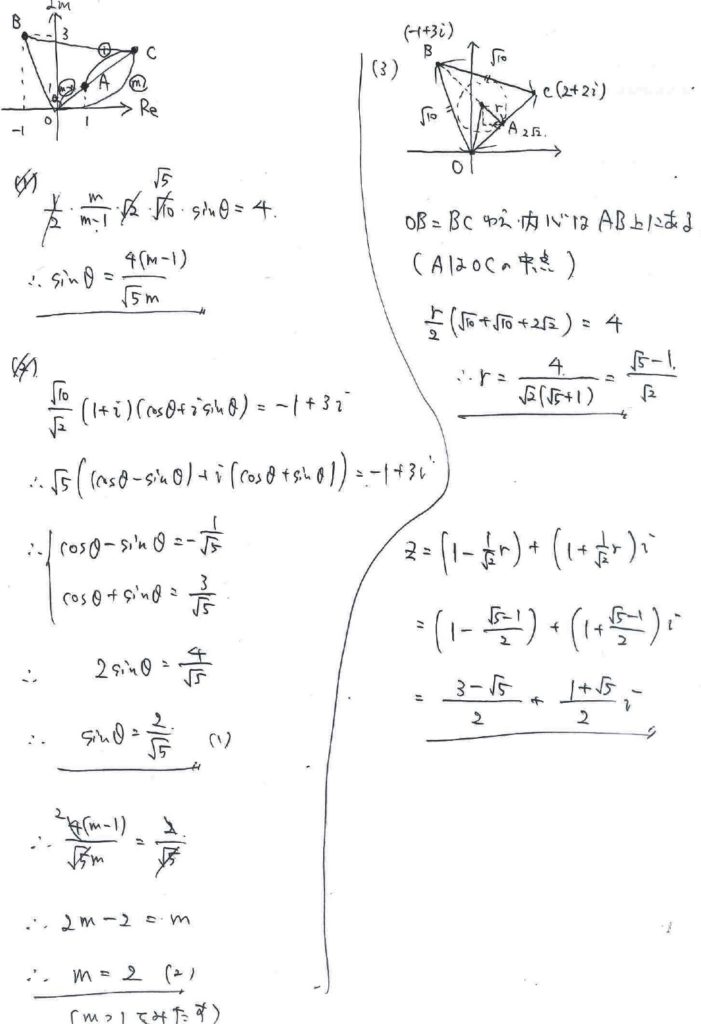 Im
B
3
①
C
A
m-1
m
1
θ
-1
0
1
Re
(1)
1/2 · m/(m-1) · √2 · √10 √5 · sinθ = 4.
∴ sinθ = 4(m-1)/(√5m)
(2)
√10/√2 (1+i)(cosθ+i sinθ) = -1+3i
∴ √5((cosθ-sinθ)+i(cosθ+sinθ)) = -1+3i
∴ { cosθ-sinθ = -1/√5
cosθ+sinθ = 3/√5
∴ 2sinθ = 4/√5
∴ sinθ = 2/√5 (1)
∴ 2 4(m-1)/(√5m) = 2/√5
∴ 2m-2 = m
∴ m = 2 (2)
(m>1をみたす)
(3)
(-1+3i)
B
√10
C(2+2i)
√10
r
A
2√2.
O
OB=BC ゆえ、内心は AB上にある
(AはOCの中点)
r/2 (√10+√10+2√2) = 4
∴ r = 4/(√2(√5+1)) = (√5-1)/√2
z = (1 - 1/√2 r) + (1 + 1/√2 r)i
= (1 - (√5-1)/2) + (1 + (√5-1)/2)i
= (3-√5)/2 + (1+√5)/2 i